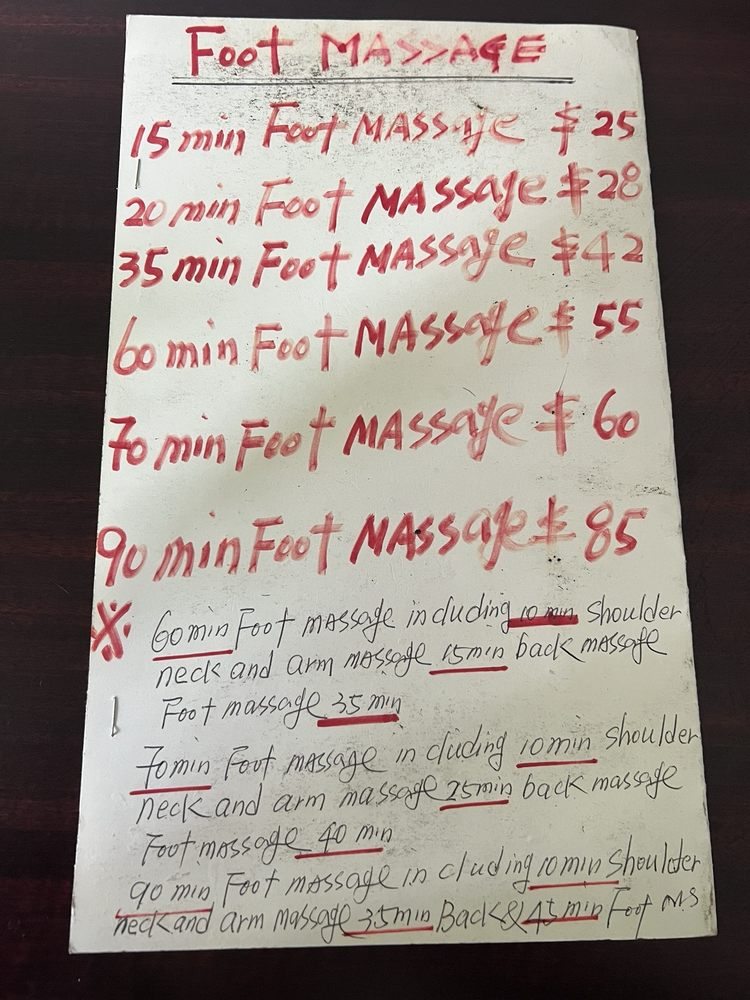 Foot MASSAGE
15 min Foot MASSage $25
20 min Foot MASSage $28
35 min Foot MASSage $42
60 min Foot MASSage $55
70 min Foot MASSage $60
90 min Foot MASSage $85
※ 60min Foot massage incduding 10 min shoulder
neck and arm massage 15min back massage
Foot massage 35 min
70min Foot massage in cluding 10min shoulder
neck and arm massage 25min back massage
Foot massage 40 min
90 min Foot massage in cluding 10min shoulder
neck and arm massage 35min Back & 45min Foot MS